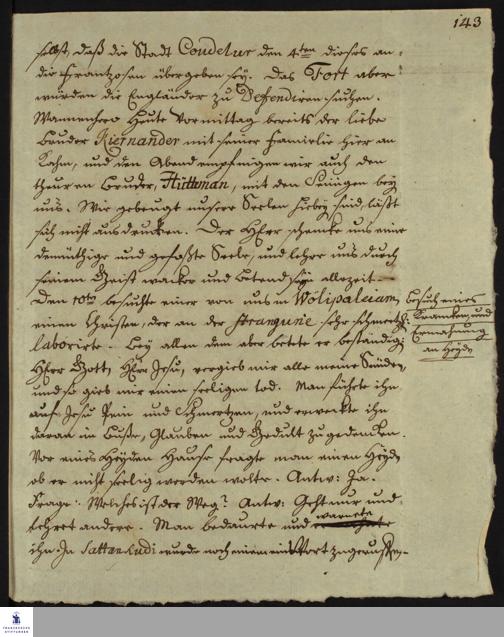 143
selbst, daß die Stadt Coudelur den 4ten dieses an
die Frantzosen übergeben sey. Das Fort aber
würden die Engländer zu Defendiren suchen.
Heute Vormittag bereits der liebe
Bruder Kiernander mit seiner Familie hier an
kahm, und den Abend empfiengen wir auch den
theuren Bruder, Hüttman, mit den Seinigen bey
uns. Wie gebeugt unsere Seelen hiebey sind, läßt
sich nicht ausdrucken. Der HErr schencke uns eine
demüthige und gefaßte Seele, und lehre uns durch
seinen Geist wacker und betend seyn allezeit.
Den 10ten besuchte einer von uns in Wölipaleiam
einen Christen, der an der Strangurie sehr schmertzl.
laborirte. Bey allen dem aber betete er beständig:
HErr Gott, HErr Jesu, vergieb mir alle meine Sünden,
und so gieb mir einen seeligen tod. Man führte ihn
auf Jesu Pein und Schmertzen, und erweckte ihn
daran in Buße, Glauben und Gedult zu gedencken.
Vor eines Heyden Hause fragte man einen Heyd
ob er nicht seelig werden wolte. Antw: Ja.
Frage: Welches ist der Weg? Antw: Geht nur und
lehret andere. Man bedaurte und warnete
ihn. In Sattankudi wurde noch einem ein Wort zugeruffen
Besuch eines
Krancken, und
Ermahnung
an Heyden
FRANCKESCHE
STIFTUNGEN